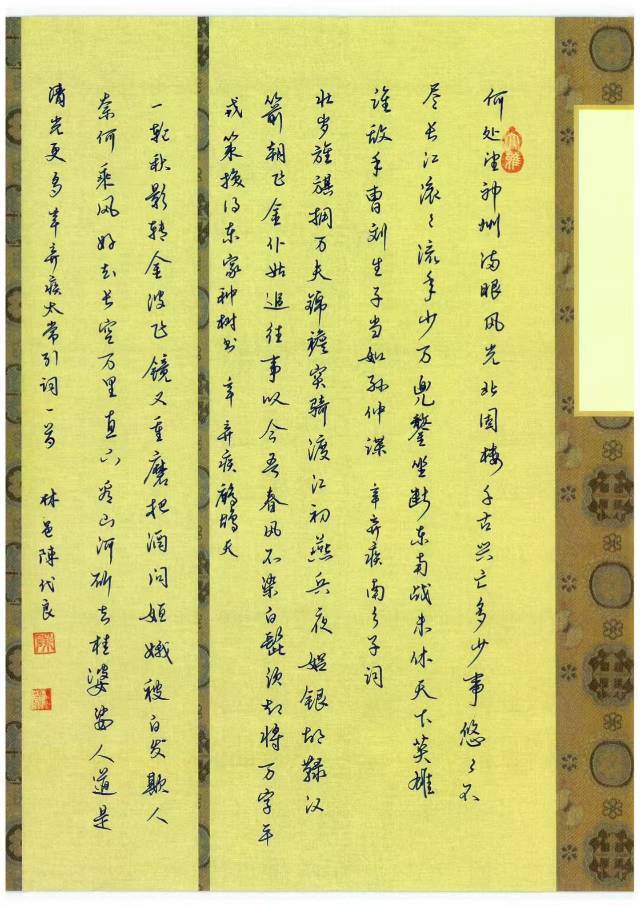 何处望神州满眼风光北固楼千古兴亡多少事悠々不
尽长江滚々流年少万兜鍪坐断东南战未休天下英雄
谁敌手曹刘生子当如孙仲谋 辛弃疾南乡子词
壮岁旌旗拥万夫锦襜突骑渡江初燕兵夜娖银胡䩮汉
箭朝飞金仆姑追往事叹今吾春风不染白髭须却将万字平
戎策换得东家种树书 辛弃疾鹧鸪天
一轮秋影转金波飞镜又重磨把酒问姮娥被白发欺人
奈何乘风好去长空万里直下看山河斫去桂婆娑人道是
清光更多辛弃疾太常引词一首 林邑陈代良